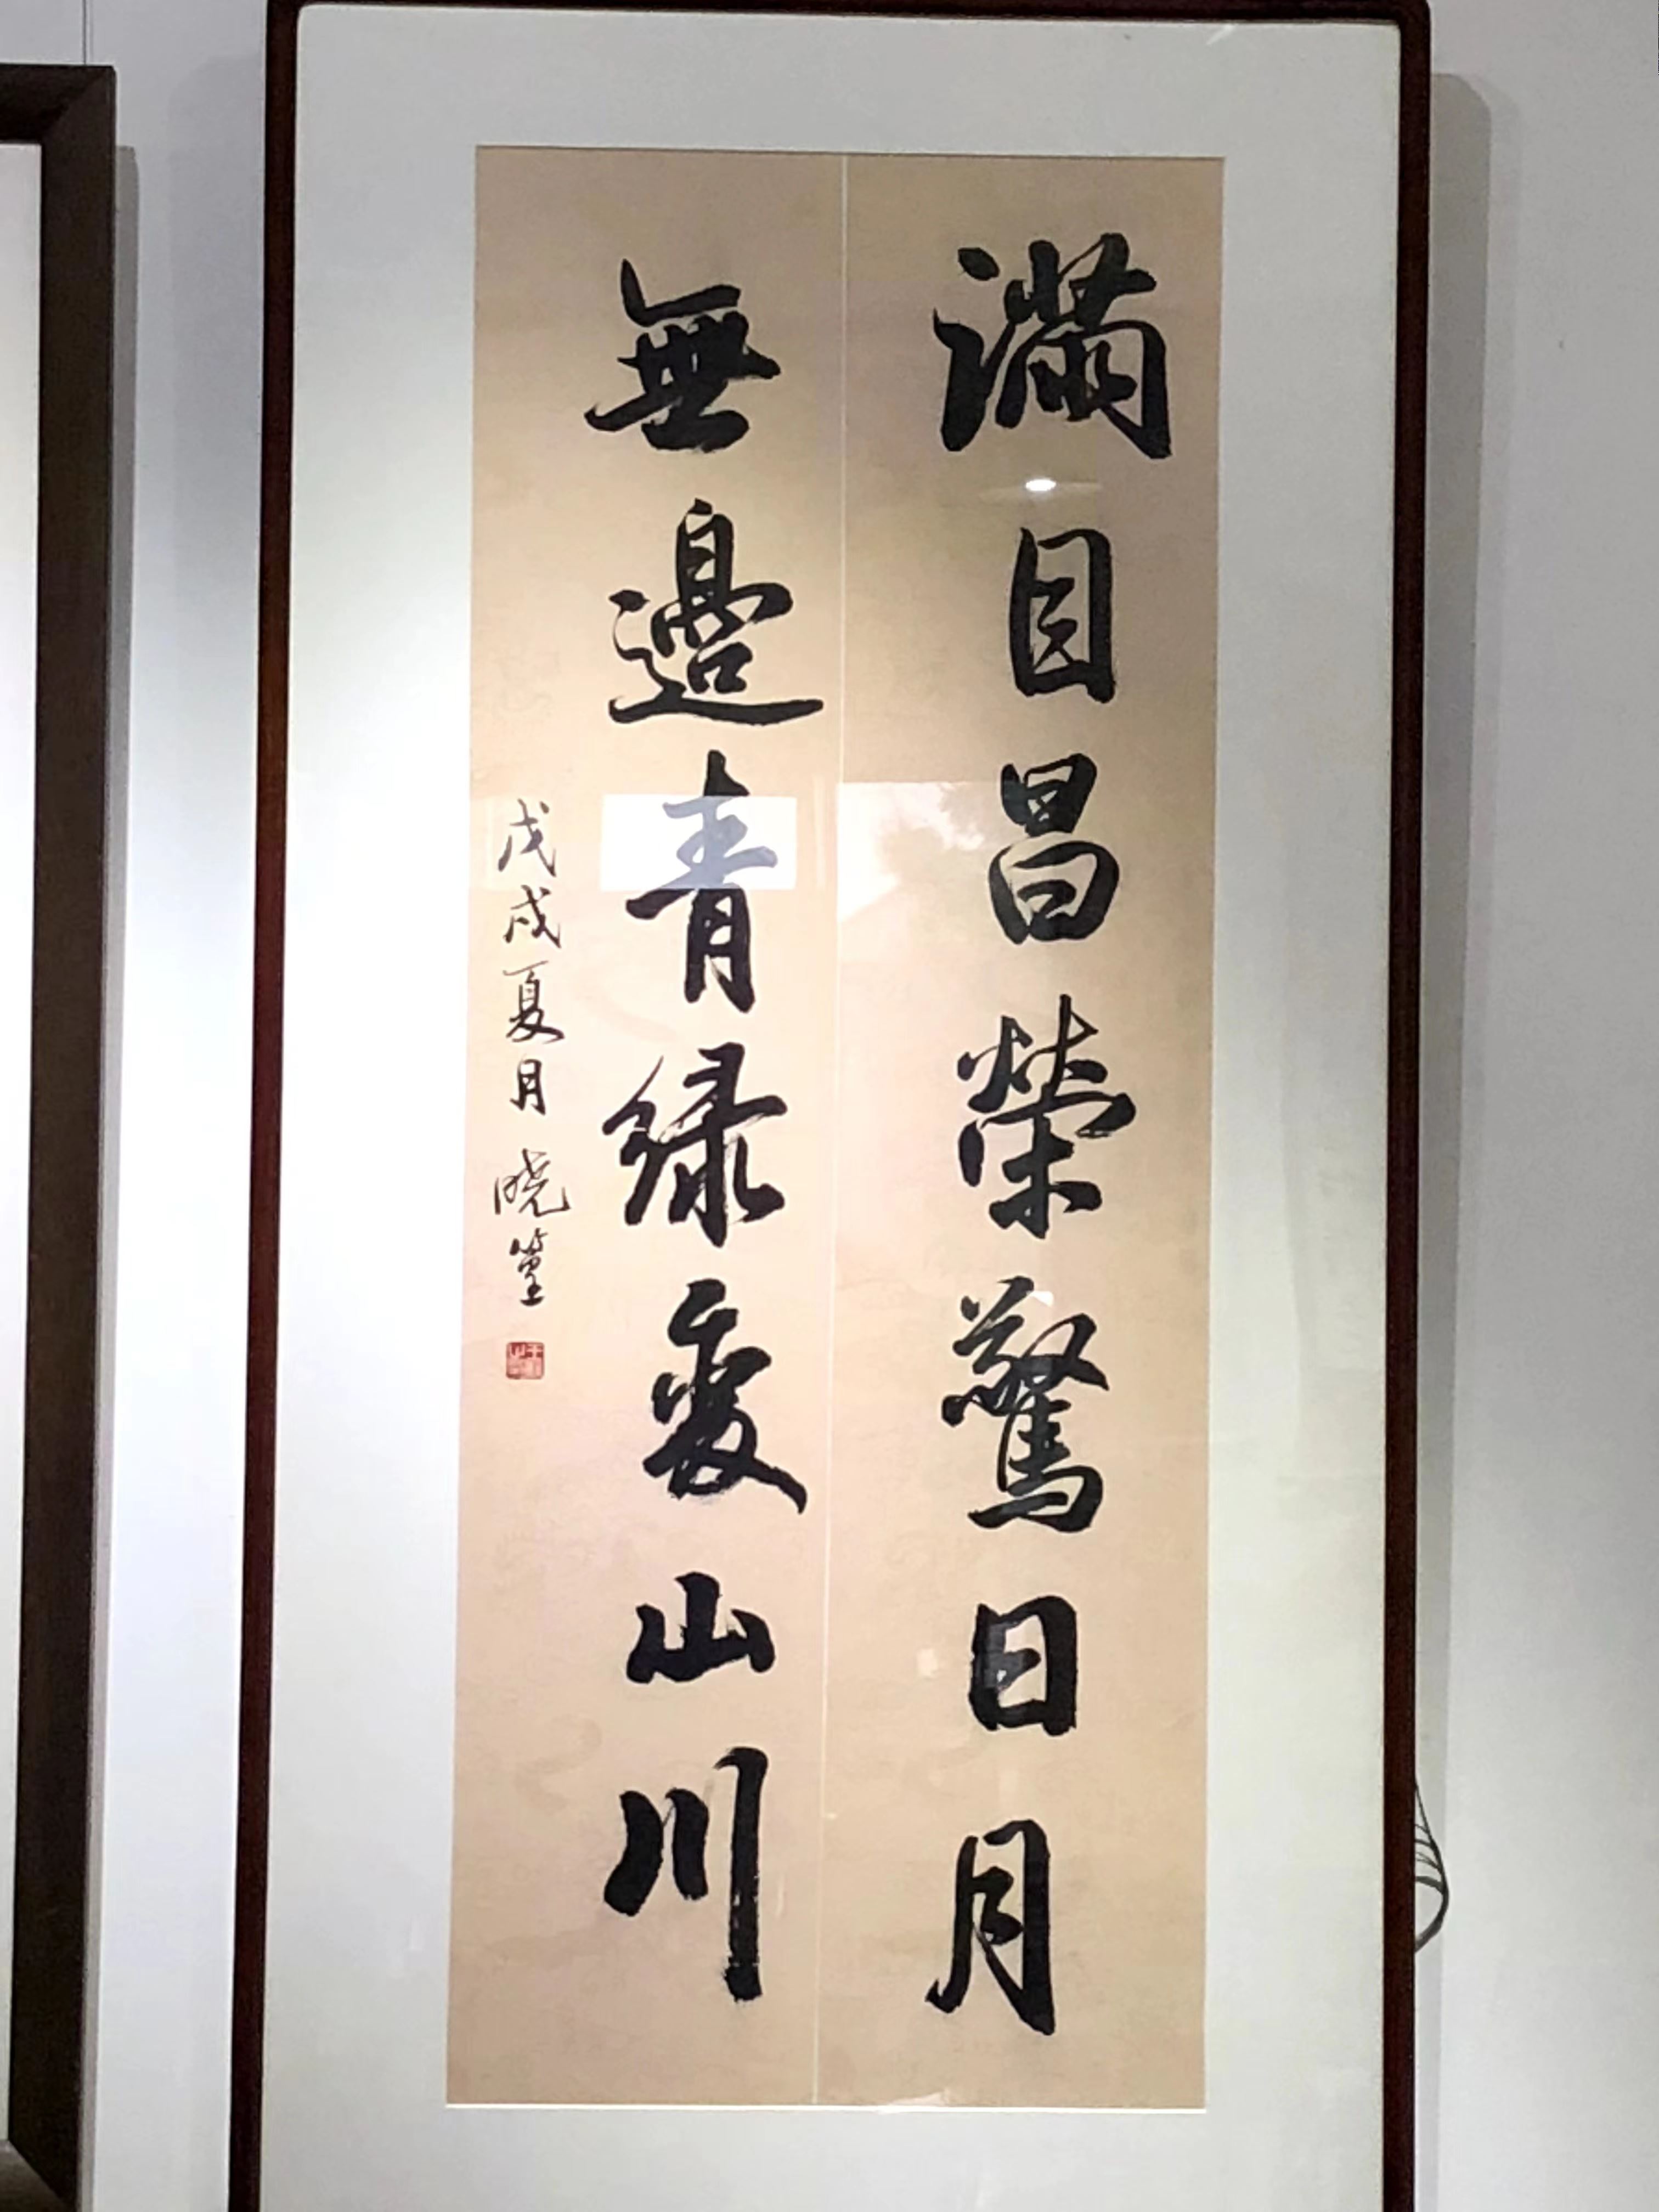 滿目昌榮驚日月
無邊青緑愛山川
戊戌夏月 曉篁